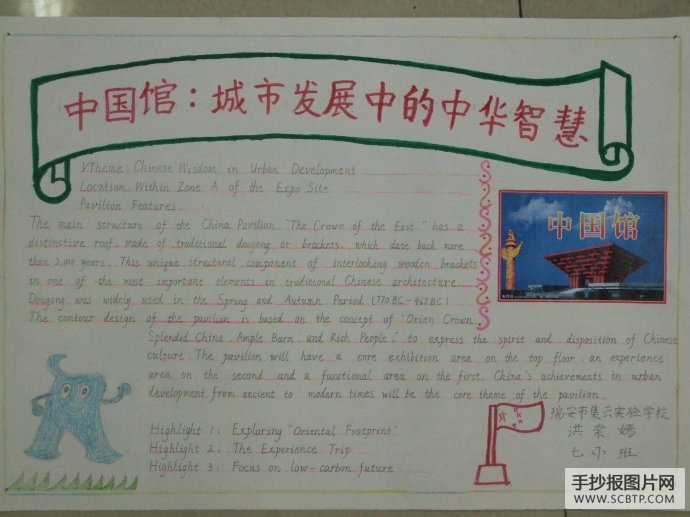 中国馆：城市发展中的中华智慧
VTheme: Chinese Wisdom in Urban Development
Location: Within Zone A of the Expo Site
Pavilion Features
The main structure of the China Pavilion, "The Crown of the East," has a
distinctive roof, made of traditional dougong or brackets, which date back more
than 2,000 years. This unique structural component of interlocking wooden brackets
in one of the most important elements in traditional Chinese architecture.
Dougong was widely used in the Spring and Autumn Period (770 BC-467 BC)
The contour design of the pavilion is based on the concept of "Orien Crown,
Splendid China, Ample Barn, and Rich People," to express the spirit and disposition of Chinese
culture. The pavilion will have a core exhibition area on the top floor, an experience
area on the second and a functional area on the first. China's achievements in urban
development from ancient to modern times will be the core theme of the pavilion.
Highlight 1: Exploring "Oriental Footprint"
Highlight 2: The Experience Trip
Highlight 3: Focus on low-carbon future
中国馆
瑞安市集云实验学校
洪
嫣
七
班
手抄报图片网
WWW.SCBTP.COM